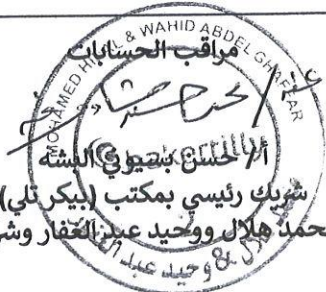 مراقب الحسابات
MOHAMED HILAL & WAHID ABDEL GHAFFAR
أ / حسن بسيوني البشه
شريك رئيسي بمكتب (بيكر تلي)
محمد هلال ووحيد عبد الغفار وشر
هلال & وحيد عبد